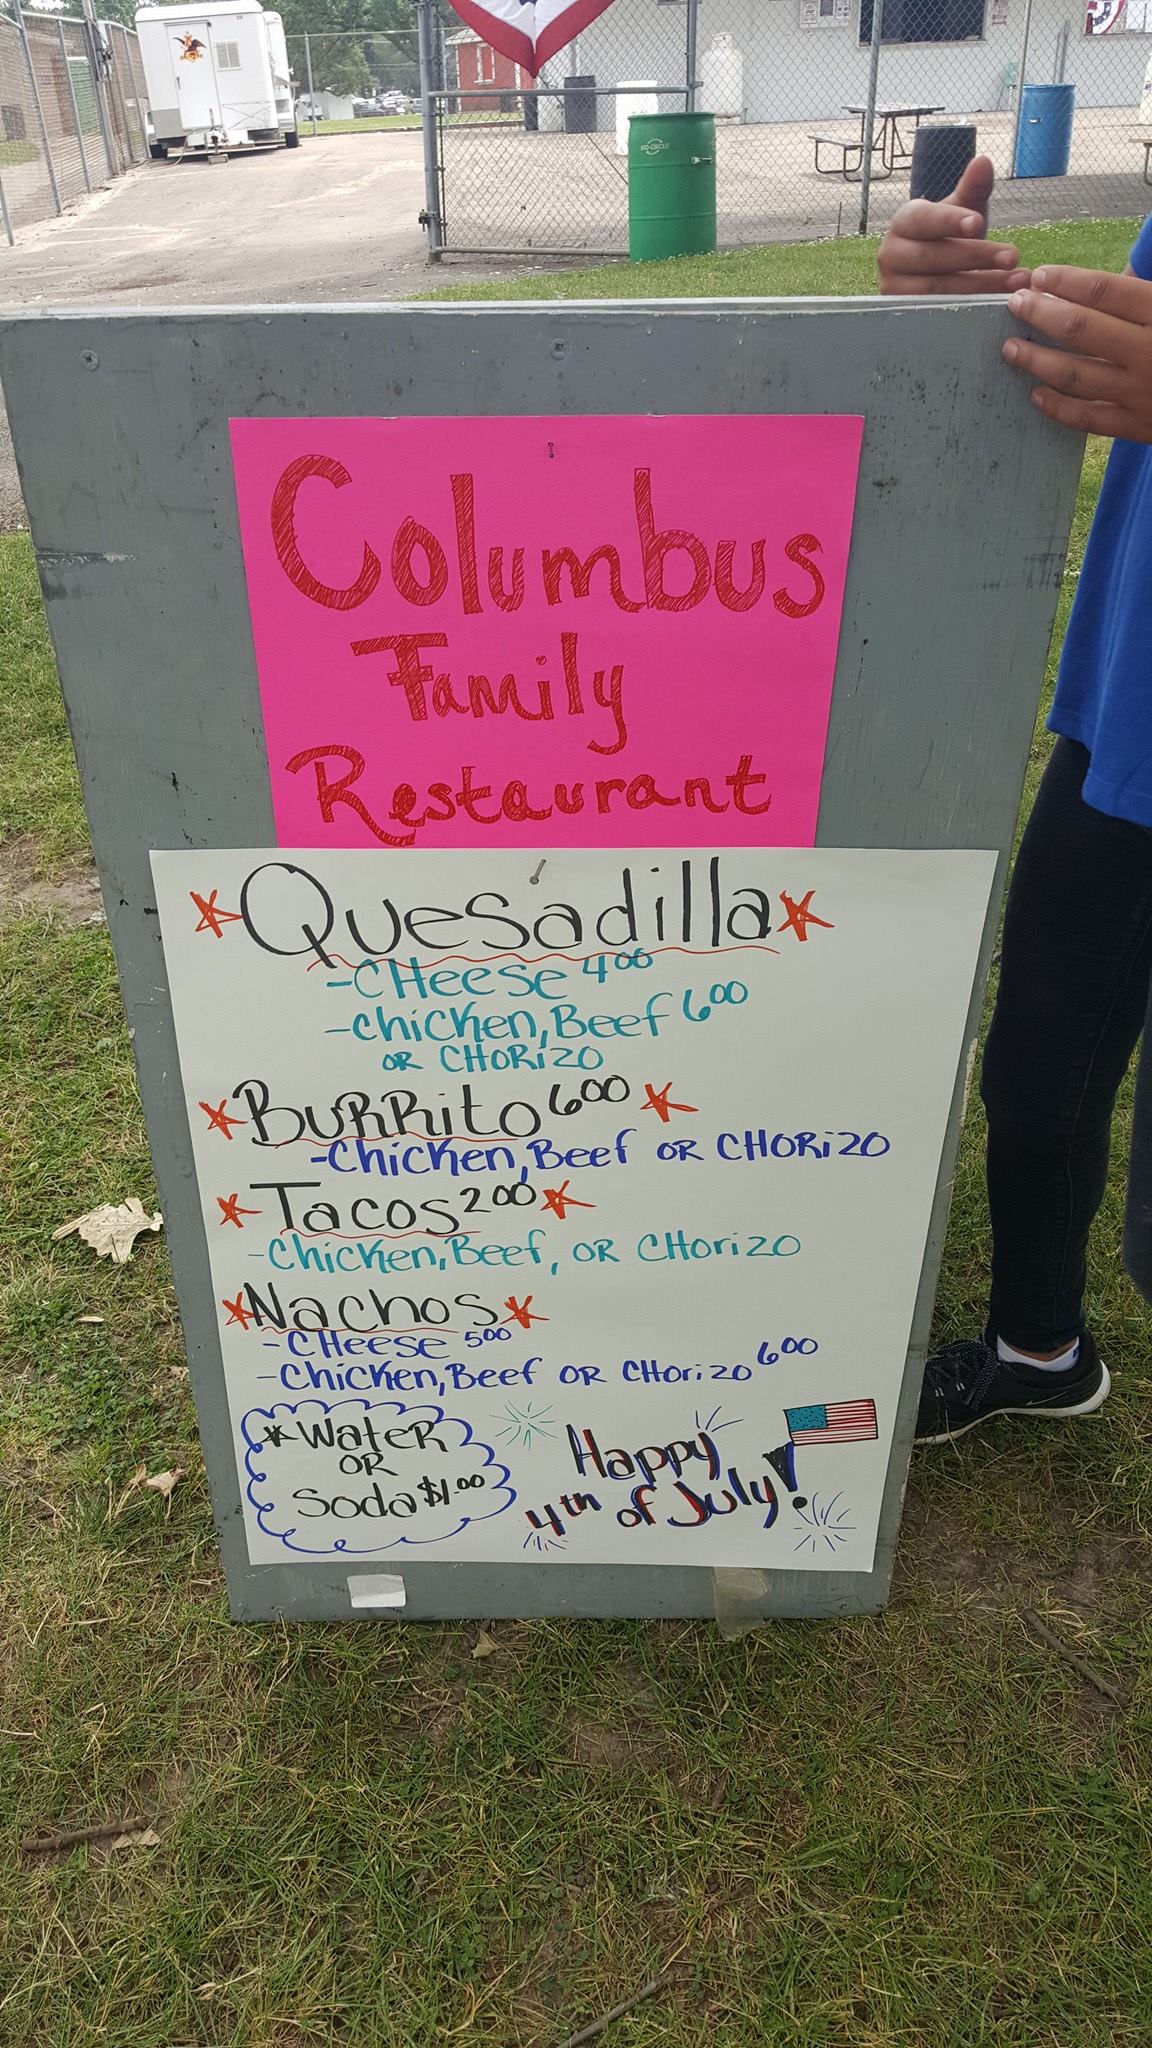 Columbus
Family
Restaurant
*Quesadilla*
-CHeese 4.00
-Chicken, Beef 6.00
OR CHORiZO
*BuRRito 6.00*
-Chicken, Beef OR CHORiZO
*Tacos 2.00*
-Chicken, Beef, OR CHorizo
*Nachos*
-CHeese 5.00
-Chicken, Beef OR CHorizo 6.00
*WateR
OR
Soda $1.00
Happy
4th of July!